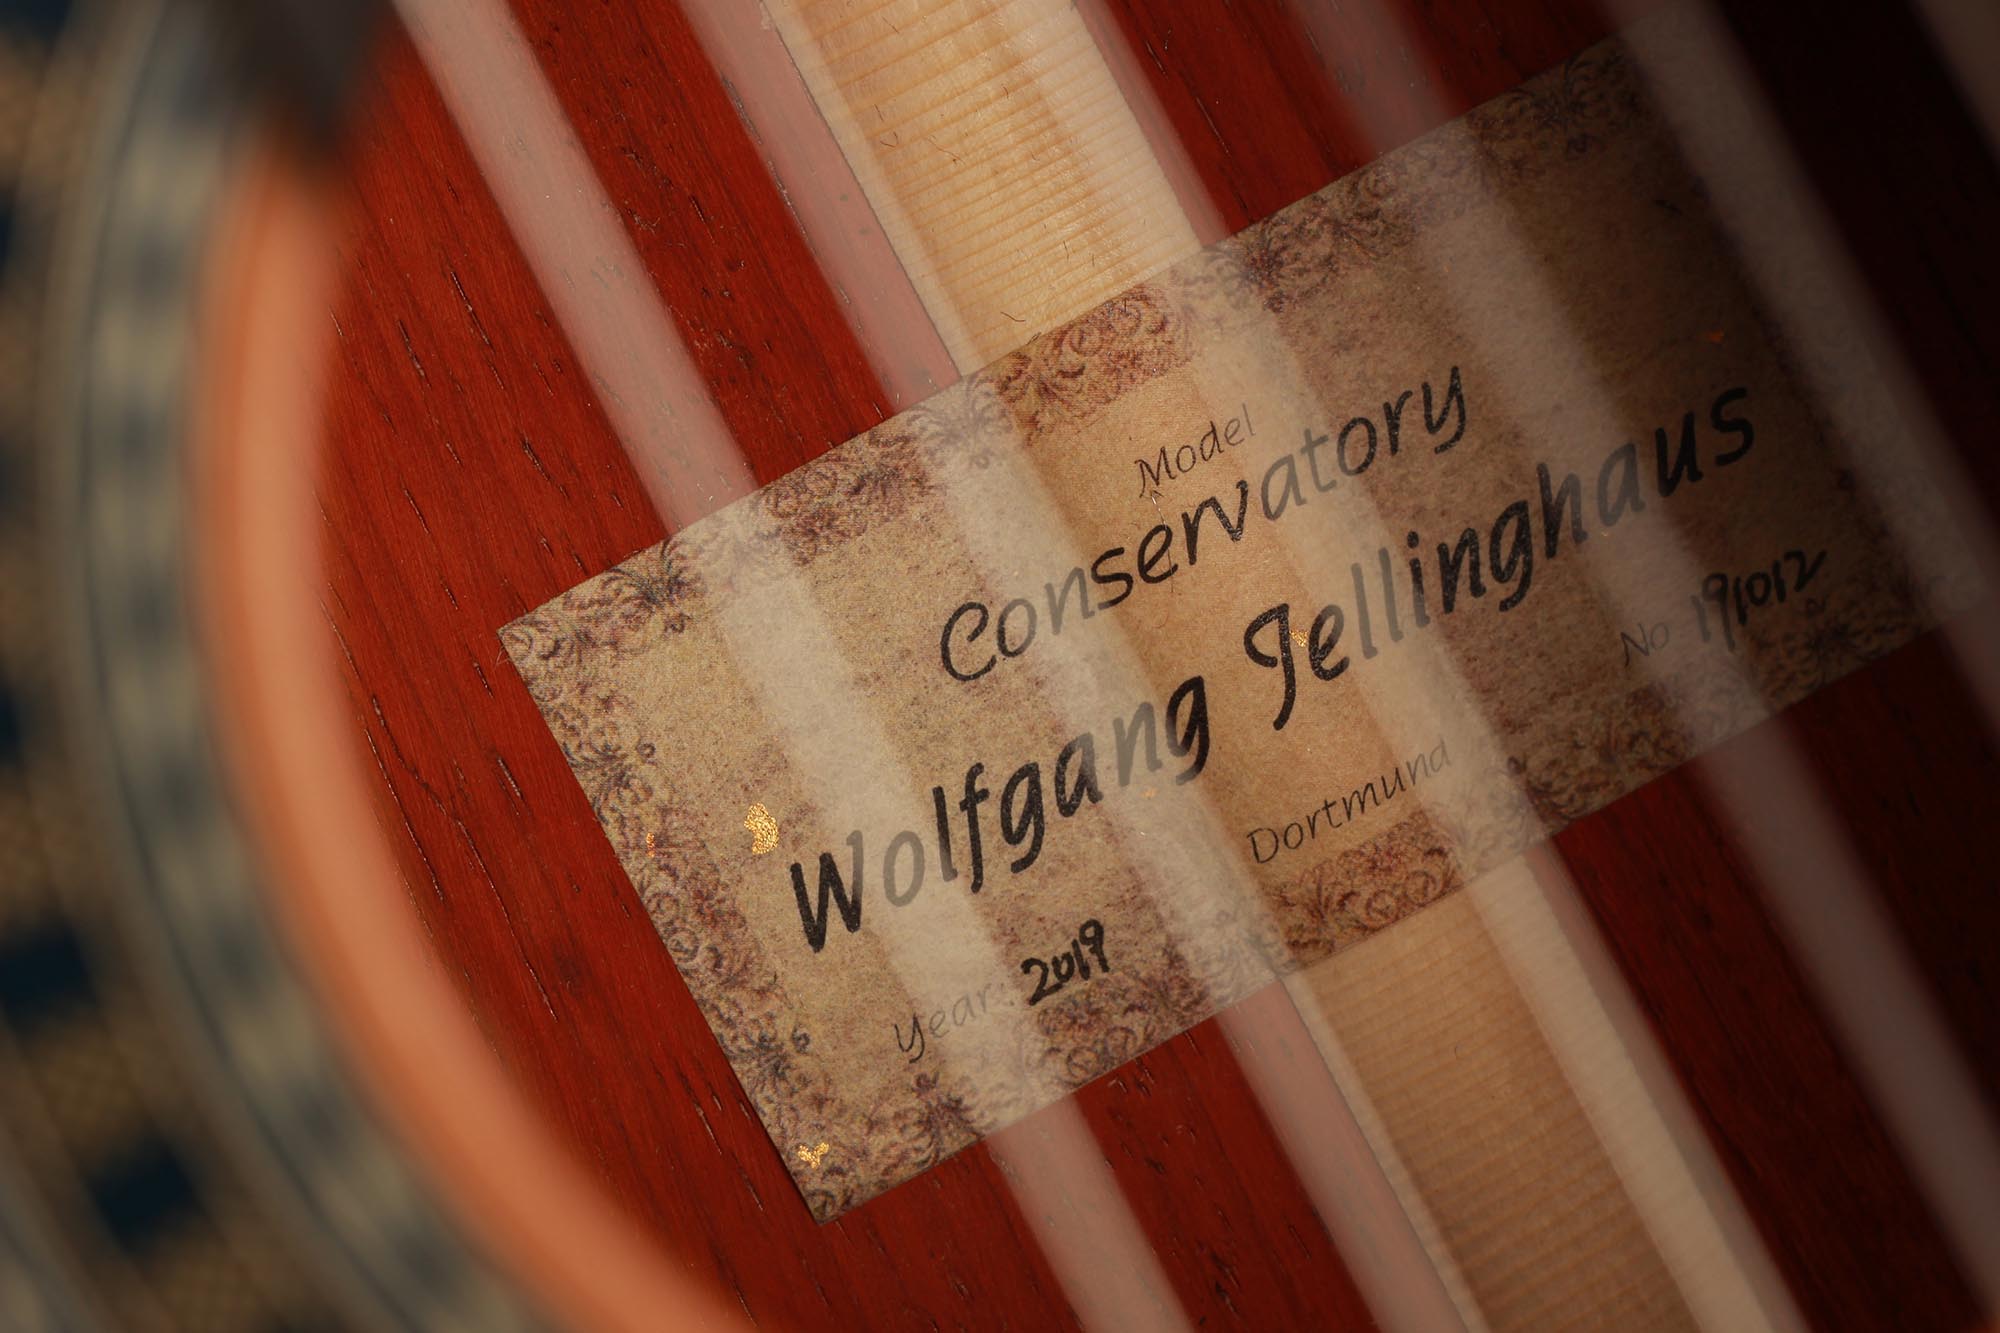 Model
Conservatory
Wolfgang Jellinghaus
Year: 2019 Dortmund No 191012